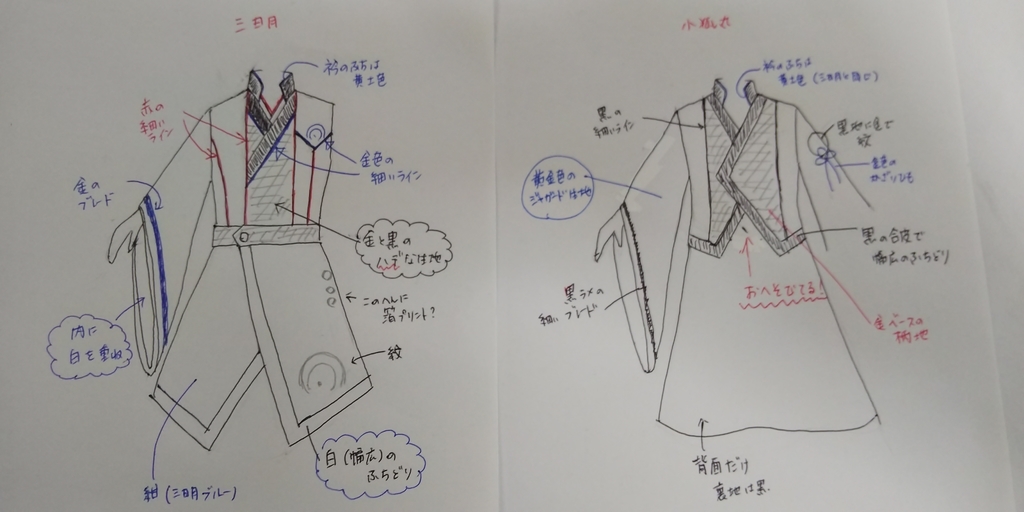 三日月
衿のふちは
黄土色
赤の
細いライン
金の
ブレード
金色の
細いライン
金と黒の
ハデなは地
このへんに
箔プリント?
紋
内に
白を重ね
白(幅広)の
ふちどり
紺(三日月ブルー)
小狐丸
衿のふちは
黄土色(三日月と同じ)
黒の
細いライン
黒地に金で
紋
金色の
かざりひも
黄金色の
ジャガードは地
黒の合皮で
幅広のふちどり
おへそでてる!
黒ラメの
細いブレード
金ベースの
柄地
背面だけ
裏地は黒